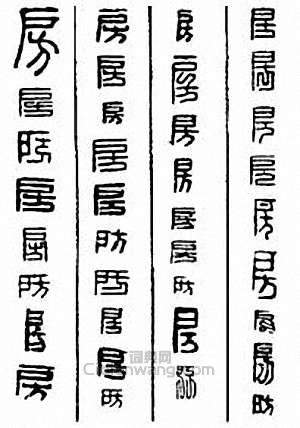 房房房房房房房房房
房房房房房房房房房
房房房房房房房房房房
房房房房房房房房
词典网
Cidianwang.com